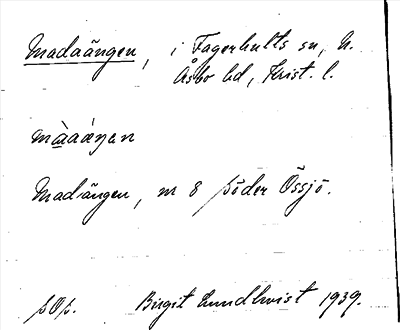 Madaängen, i Fagerhults sn, N.
Åsbo hd, Krist. l.
Madängen, m 8 söder Össjö.
Birgit Lundkvist 1939.